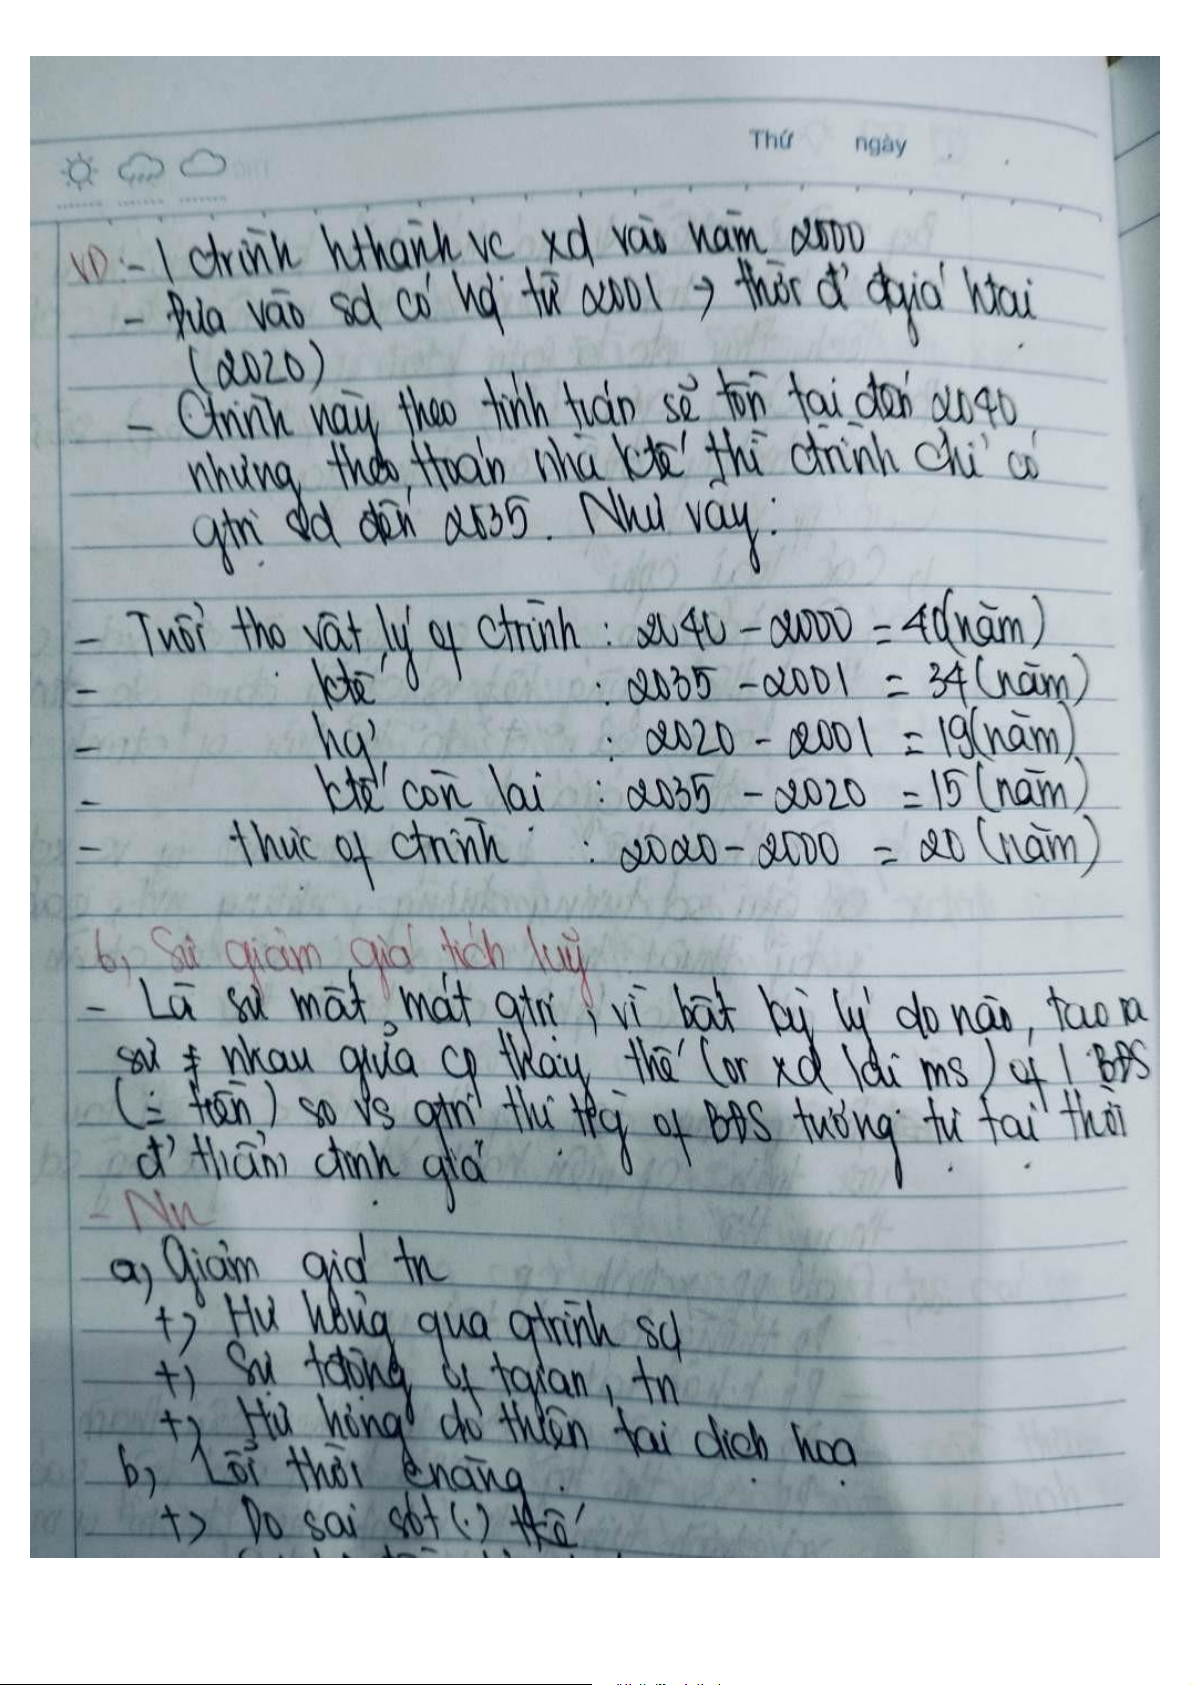 Thứ ngày
VD: - 1 ctrình hthành vc xd vào năm 2000
- Đưa vào sd có hq' từ 2001 → thời đ' đgiá htại
(2020)
- Ctrình này theo tính toán sẽ tồn tại đến 2040
nhưng theo ttoán nhà ktế thì ctrình chỉ có
gtrị sd đến 2035. Như vậy:
- Tuổi thọ vật lý of ctrình : 2040 - 2000 = 40 (năm)
- ktế : 2035 - 2001 = 34 (năm)
- hq' : 2020 - 2001 = 19 (năm)
- ktế còn lại : 2035 - 2020 = 15 (năm)
- thực of ctrình : 2020 - 2000 = 20 (năm)
b, Sự giảm giá tích luỹ
- Là sự mất mát gtrị, vì bất kỳ lý do nào, tạo ra
sự ≠ nhau giữa cp thay thế (or xd lại ms) of 1 BĐS
(= tiền) so vs gtrị thị trg of BĐS tương tự tại thời
đ' thẩm định giá
- Nn
a, Giảm giá tn
+, Hư hỏng qua qtrình sd
+, Sự tđộng of tgian, tn
+, Hư hỏng do thiên tai dịch hoạ
b, Lỗi thời cnăng
+, Do sai sót (.) tkế